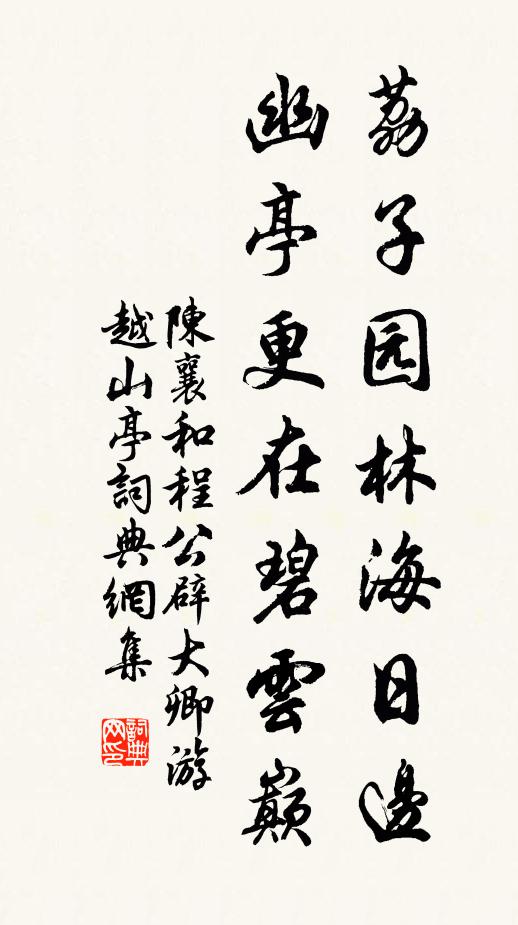 荔子园林海日邊
幽亭更在碧雲巔
陳襄和程公辟大卿游
越山亭詞典網集
詞典
网印